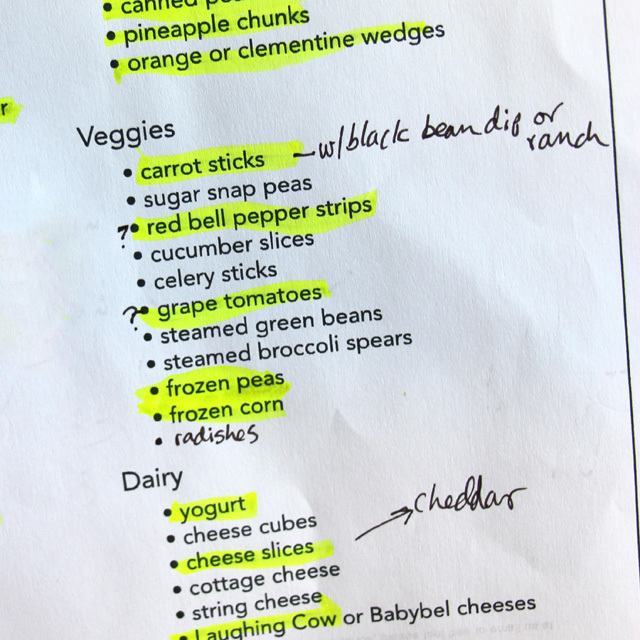 • canned
• pineapple chunks
• orange or clementine wedges
r
Veggies
• carrot sticks – w/black bean dip or ranch
• sugar snap peas
? • red bell pepper strips
• cucumber slices
• celery sticks
? • grape tomatoes
• steamed green beans
• steamed broccoli spears
• frozen peas
• frozen corn
• radishes
Dairy
• yogurt
• cheese cubes → cheddar
• cheese slices
• cottage cheese
• string cheese
• Laughing Cow or Babybel cheeses